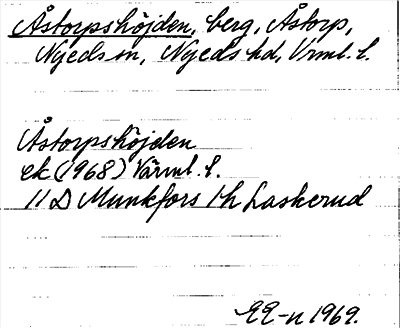 Åstorpshöjden, berg, Åstorp,
Nyeds sn, Nyeds hd, Vrml. l.
Åstorpshöjden
ek (1968) Värml. l.
11 D Munkfors 1 h Laskerud
EE-n 1969.